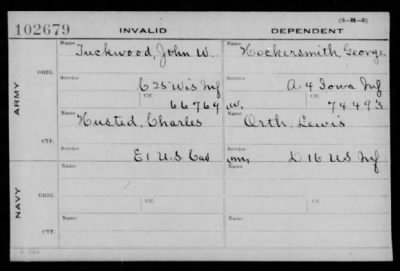 (3-H-3)
102679 INVALID DEPENDENT
Name Tuckwood, John W. Name Hockersmith, George
ORIG.
Service Service
C 25 Wis Inf A 4 Iowa Inf
ARMY
Ctf. 66764 Ctf. 74493
Name Husted, Charles Name Orth, Lewis
CTF.
Service Service
E 1 U.S. Cav D 16 US Inf
Name Name
ORIG.
Service Ctf. Service Ctf.
NAVY
Name Name
CTF.
Service Service